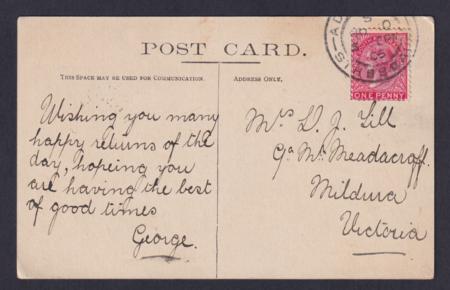 POST CARD.
THIS SPACE MAY BE USED FOR COMMUNICATION.
ADDRESS ONLY.
Wishing you many
happy returns of the
day, hopeing you
are having the best
of good times
George.
ONE PENNY
Mrs D. J. Lill
C/o Mr. Meadacroff
Mildura
Victoria